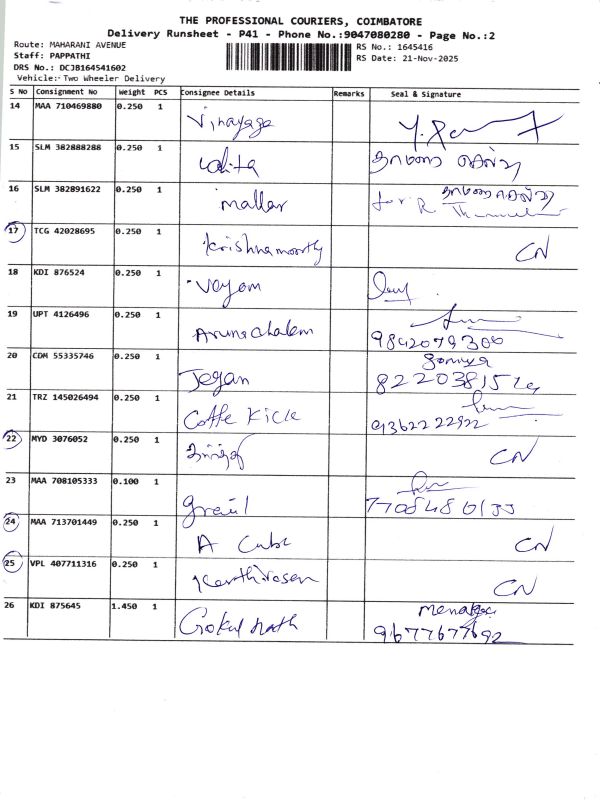 THE PROFESSIONAL COURIERS, COIMBATORE
Delivery Runsheet - P41 - Phone No.:9047080280 - Page No.:2
Route: MAHARANI AVENUE RS No.: 1645416
Staff: PAPPATHI RS Date: 21-Nov-2025
DRS No.: DCJB164541602
Vehicle:- Two Wheeler Delivery
S No Consignment No Weight PCS Consignee Details Remarks Seal & Signature
14 MAA 710469880 0.250 1 Vinayaga
15 SLM 382888288 0.250 1 Lalita தாமரை செல்வி
16 SLM 382891622 0.250 1 mallar for R. தாமரைசெல்வி
17 TCG 42028695 0.250 1 Krishnamoorthy CN
18 KDI 876524 0.250 1 Vayam
19 UPT 4126496 0.250 1 Arunachalam 9842079300
20 COM 55335746 0.250 1 Jegan Sowmya
21 TRZ 145026494 0.250 1 Coffe Kick 9362222922
22 MYD 3076052 0.250 1 CN
23 MAA 708105333 0.100 1
24 MAA 713701449 0.250 1 A Cube CN
25 VPL 407711316 0.250 1 CN
26 KDI 875645 1.450 1 Gokul nath 9677677692